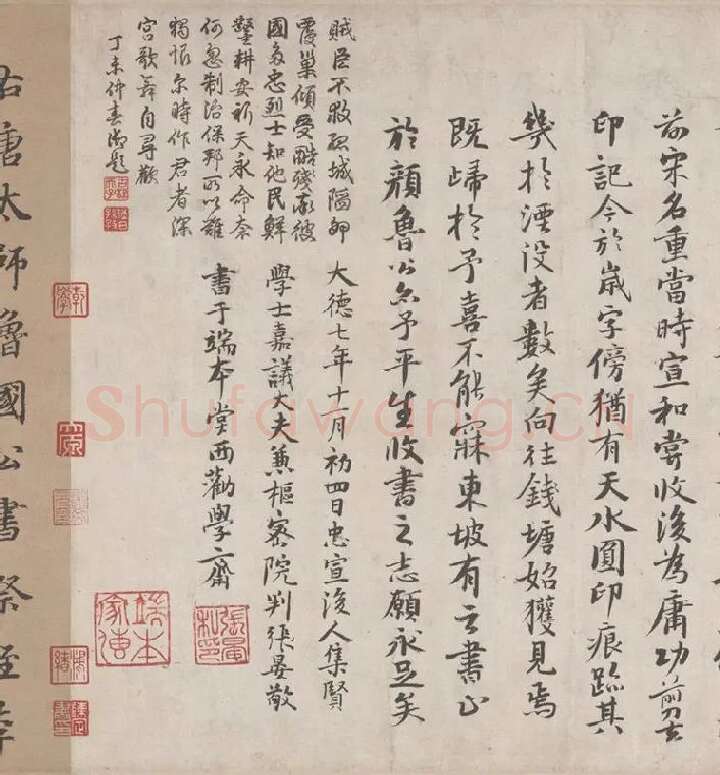 前宋名重當時宣和嘗收後為庸功剪去
印記今於歲字傍猶有天水圓印痕跡其
幾於湮没者數矣向往錢塘始獲見焉
既歸於予喜不能寐東坡有云書止
於顏魯公尔予平生收書之志願永足矣
大德七年十一月初四日忠宣後人集賢
學士嘉議大夫兼樞密院判張晏敬
書于端本堂西勸學齋
張晏私印
端本家傳
賊臣不救孤城陷卵
覆巢傾受酷殘彼
國多忠烈士知他民鮮
鑿耕要祈天永命奈
何忽制治保邦所以難
獨恨尔時作君者深
宮歌舞自尋歡
丁未仲春御題
右唐太師魯國公書祭姪季
Shufawang.cn